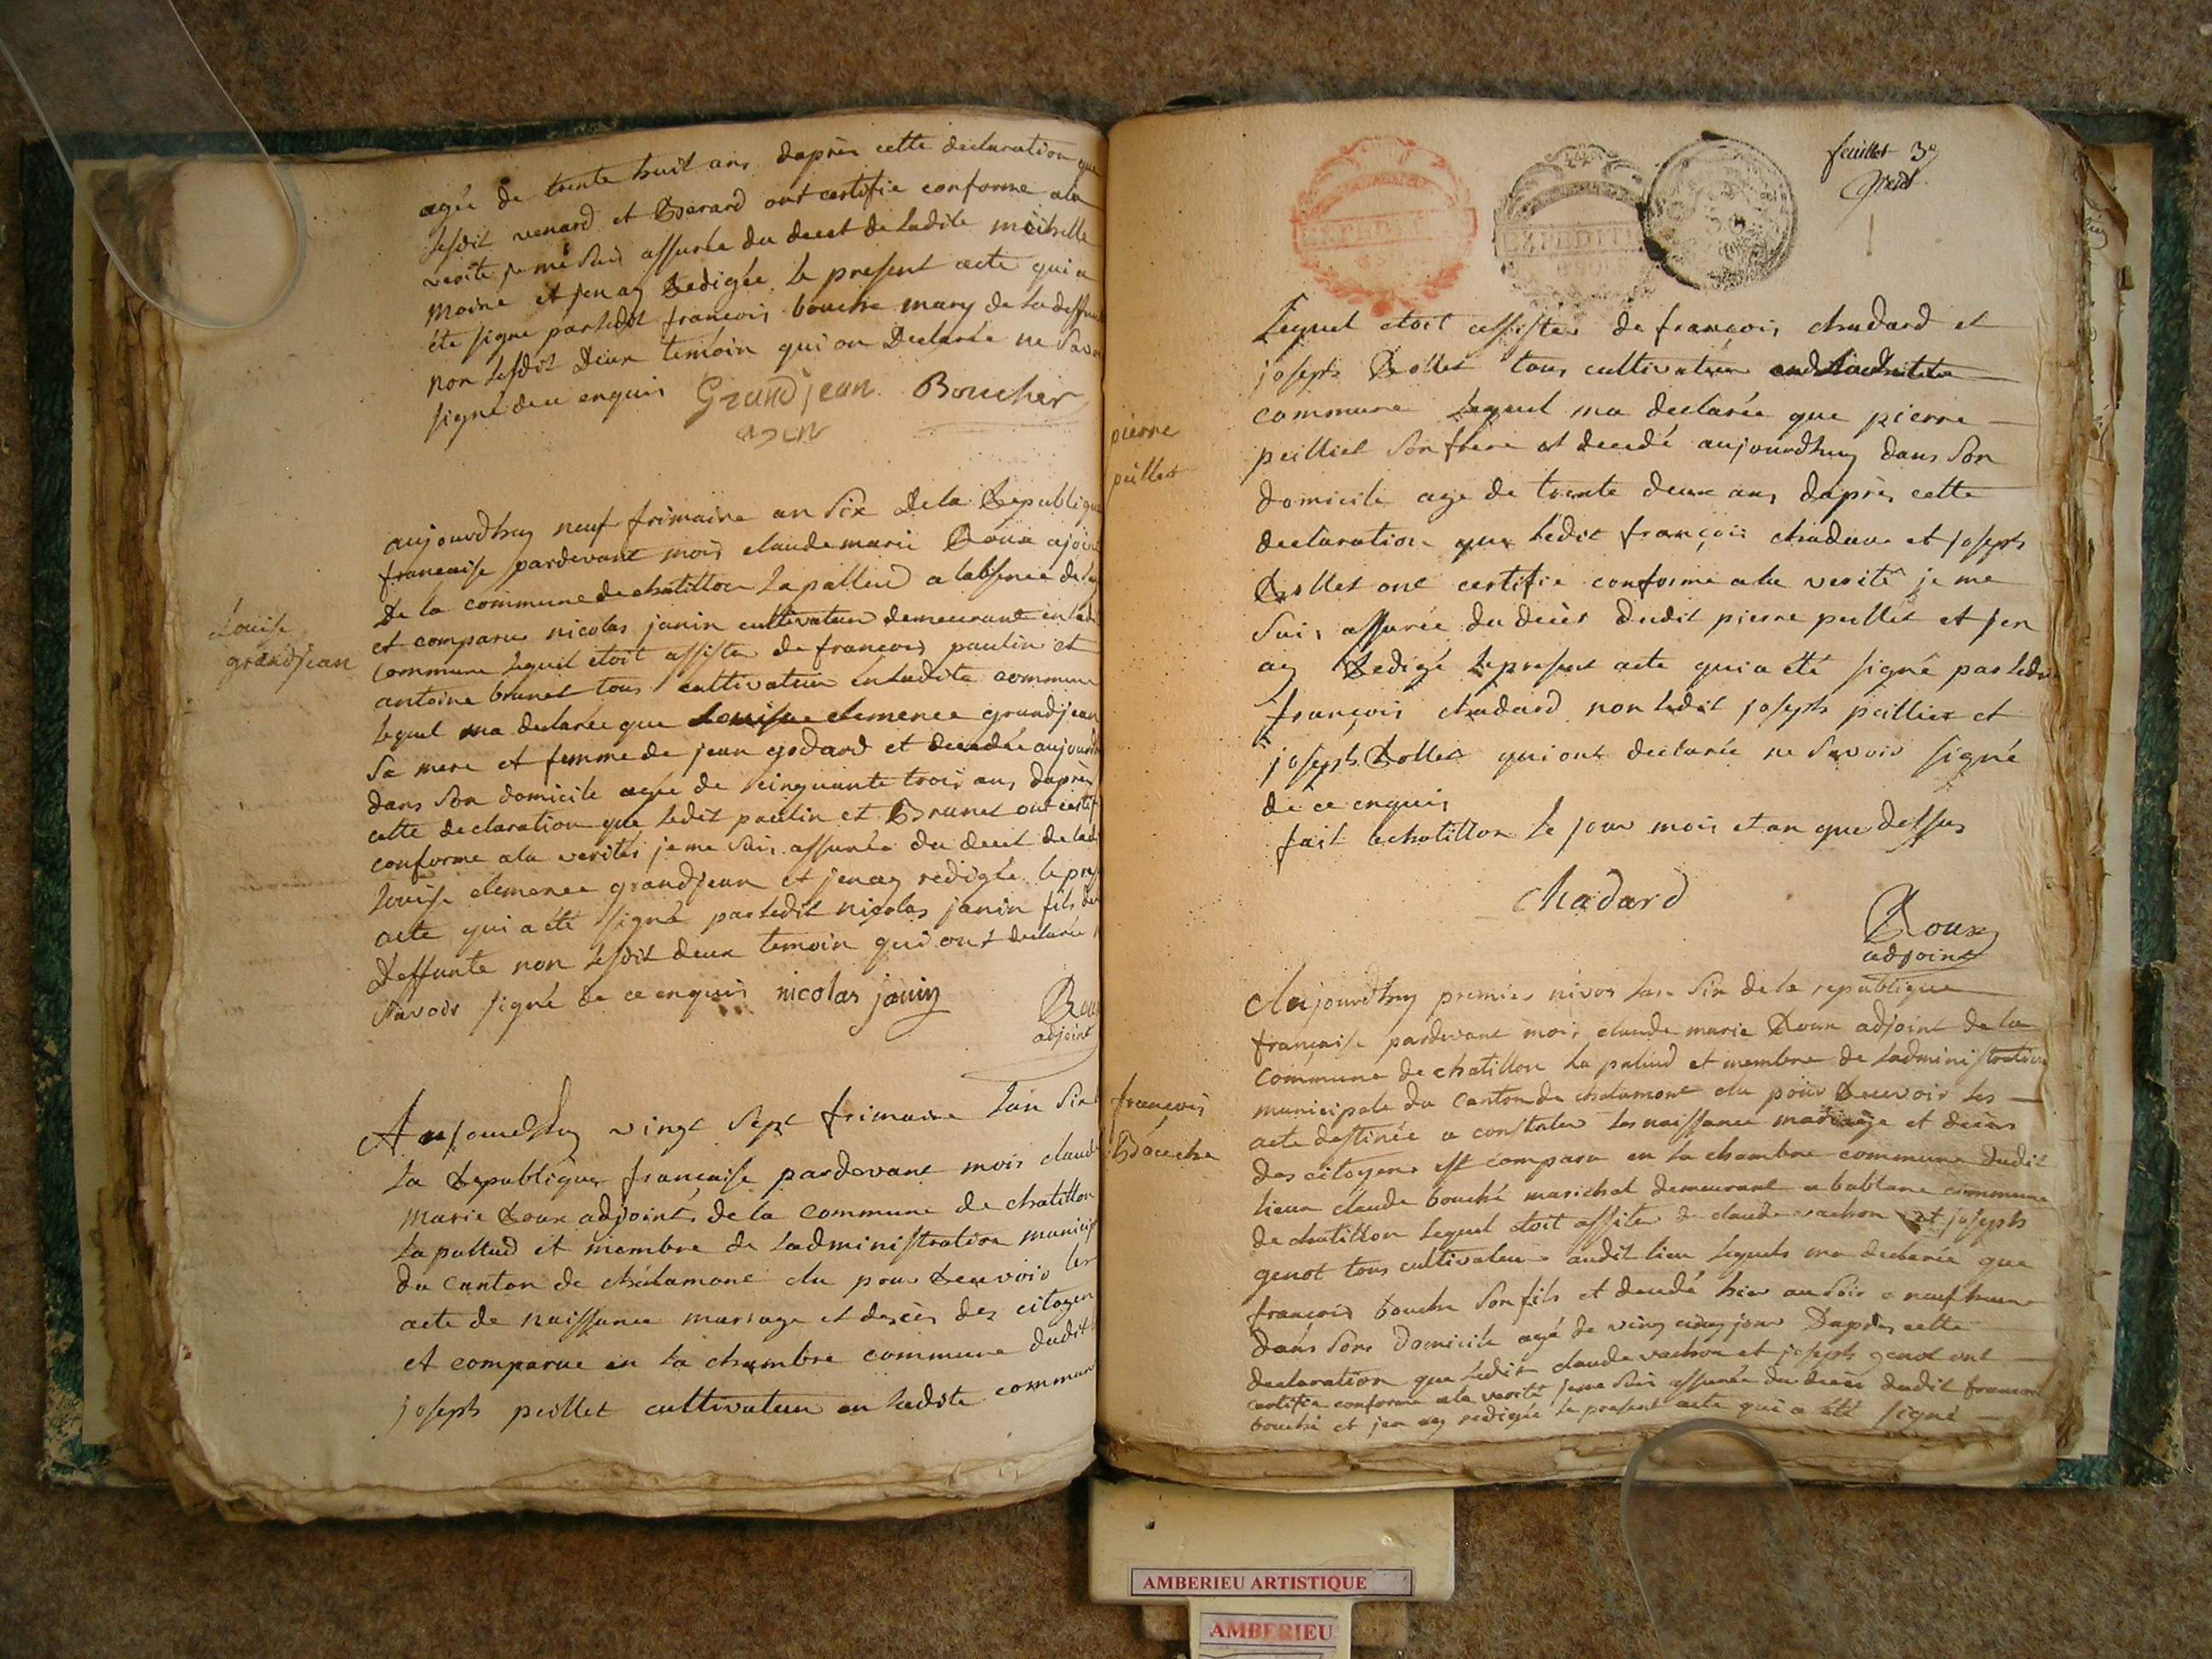 agée de trente huit ans daprès cette declaration que
lesdit venard et Berard ont certifie conforme ala
verité je me suis assurée du decet de ladite michelle
moine et jenay Redigée le present acte qui a
été signe parledit francois bouche mary de la deffunte
non lesdit deux temoin qui on Declarée ne Savoir
signé dece enquis Grandjean Boucher
agen
Louise
grandjean
aujourdhuy neuf frimaire an Six de la Republique
francaise pardevant mois claude marie Roux ajoint
De la commune de chatillon Lapallud a labsence de
et comparu nicolas janin cultivateur demeurant en ladite
commune lequel etoit assister de francois paulin et
antoine brunet tous cultivateur en ladite commune
lequel ma declarée que Louise clemence grandjean
Sa mere et femme de jean godard et decedée aujourdhuy
dans Son domicile agée de cinquante trois ans daprès
cette declaration que ledit paulin et Brunet ont certifie
conforme ala verités je me Suis assurée du decet de ladite
Louise clemence grandjean et jenay redigée le present
acte qui a été signé parledit nicolas janin fils de
Deffunte non lesdit deux temoin qui ont declarée
Savoir signé de ce enquis nicolas janin
Roux
adjoint
Aujourdhuy vingt Sept frimaire Lan Six
La Republique francaise pardevant mois claude
Marie Roux adjoint de la commune de chatillon
La pallud et membre de Ladministration municip
du canton de chalamont elu pour Recevoir les
acte de naissance mariage et décès des citoyen
et comparue en la chambre commune dudit
joseph peillet cultivateur en ladite commune
feuillet 3e
pierre
peillet
Lequel etoit assister de francois chadard et
joseph Rollet tous cultivateur
commune Lequel ma declarée que pierre
peilliet Son frere et decedé aujourdhuy dans Son
domicile age de trente deux ans daprès cette
declaration que Ledit françois chadard et joseph
Rollet ont certifie conforme ala verité je me
Suis assurée du décès dudit pierre peillet et jen
ay Redigé le present acte qui a été signé par ledit
françois chadard non ledit joseph peillier et
joseph Rollet qui ont declarée ne Savoir signé
de ce enquis
fait a chatillon le jour mois et an que dessus
chadard
Roux
adjoint
francois
Bouche
Aujourdhuy premier nivos lan Six de la republique
française pardevant mois claude marie Roux adjoint de la
Commune de chatillon La palud et membre de Ladministration
municipale du canton de chalamont elu pour Recevoir les
acte destinée a constater les naissance mariage et décès
des citoyens est comparu en la chambre commune dudit
lieux claude bouché marichal demeurant a bublane commune
de chatillon lequel etoit assiter de claude vachon et joseph
genot tous cultivateur audit lieu lequels ma declarée que
francois bouche Son fils et decedé hier au Soir a neuf heure
dans Sons domicile agé de ving cinq jour Daprès cette
declaration que ledit claude vachon et joseph genot ont
certifie conforme ala verité jeme Suis assurée du décès dudit francois
bouché et jen ay redigée le present acte qui a été signé
AMBERIEU ARTISTIQUE
AMBERIEU